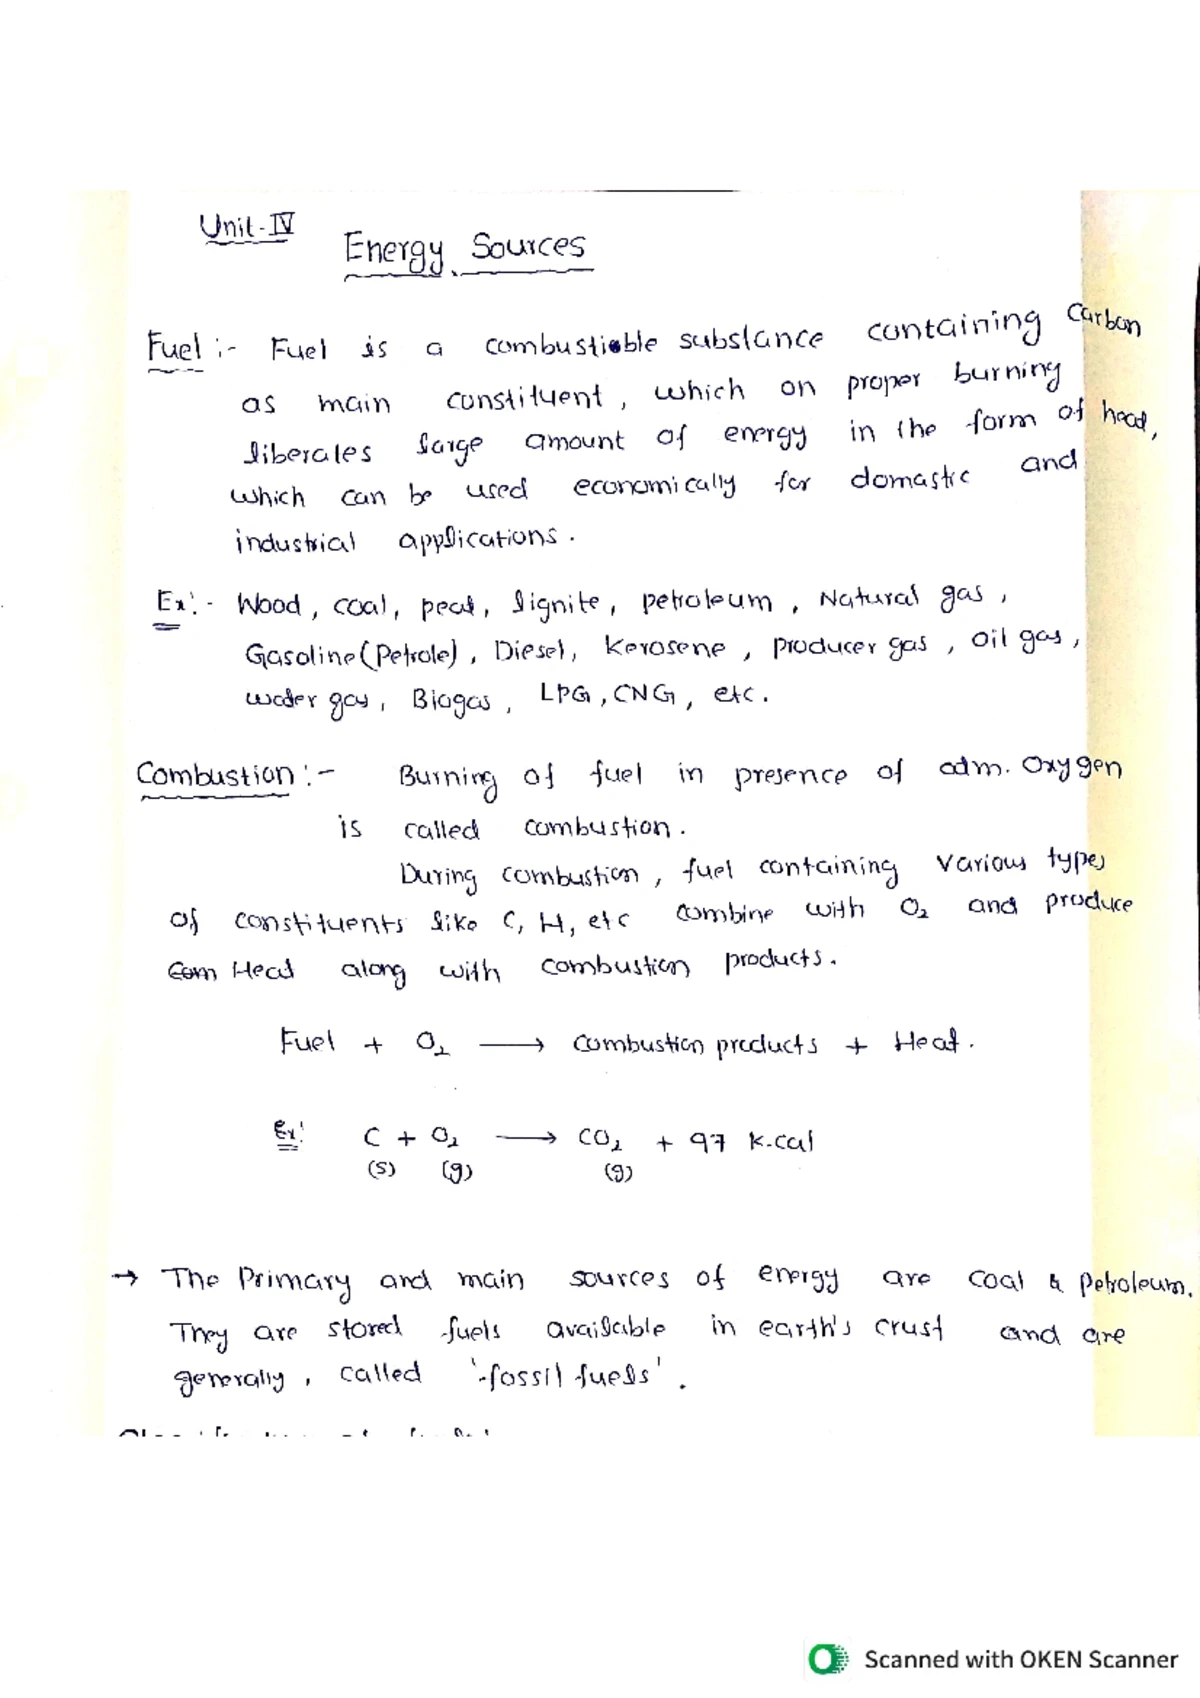 Unit-IV
Energy Sources
Fuel :- Fuel is a combustiable substance containing Carbon
as main constituent, which on proper burning
liberates large amount of energy in the form of heat,
which can be used economically for domastic and
industrial applications.
Ex:- Wood, coal, peat, lignite, petroleum, Natural gas,
Gasoline(Petrole), Diesel, Kerosene, producer gas, oil gas,
water gas, Biogas, LPG, CNG, etc.
Combustion :- Burning of fuel in presence of atm. Oxygen
is called combustion.
During combustion, fuel containing various types
of constituents like C, H, etc combine with O₂ and produce
Com Heat along with combustion products.
Fuel + O₂ ⟶ combustion products + Heat.
Ex: C + O₂ ⟶ CO₂ + 97 k.cal
(s) (g) (g)
→ The Primary and main sources of energy are coal & petroleum.
They are stored fuels available in earth's crust and are
generally, called 'fossil fuels'.
Scanned with OKEN Scanner